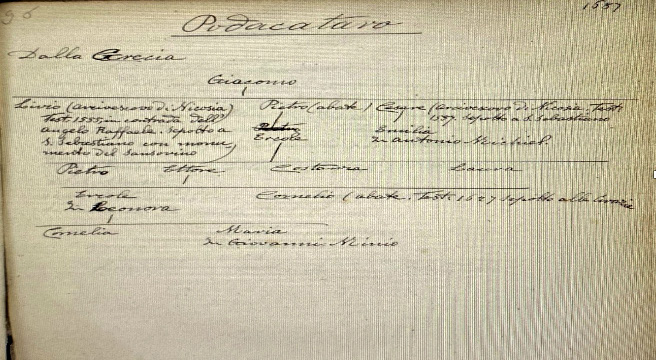 96
1657
Podacataro
Dalla Grecia
Giacomo
Livio (arcivescovo di Nicosia)
Test. 1555, in contrada dell'
angelo Raffaele. Sepolto a
S. Sebastiano con monu
mento del Sansovino
Pietro (abate)
Ercole
Cesare (arcivescovo di Nicosia. Test.
1557. Sepolto a S. Sebastiano
Emilia
di Antonio Michiel.
Pietro Ettore Costanza Laura
Ercole
di Leonora
Cornelio (abate. Test. 1657 sepolto alle
Cornelia
Maria
di Giovanni Minio